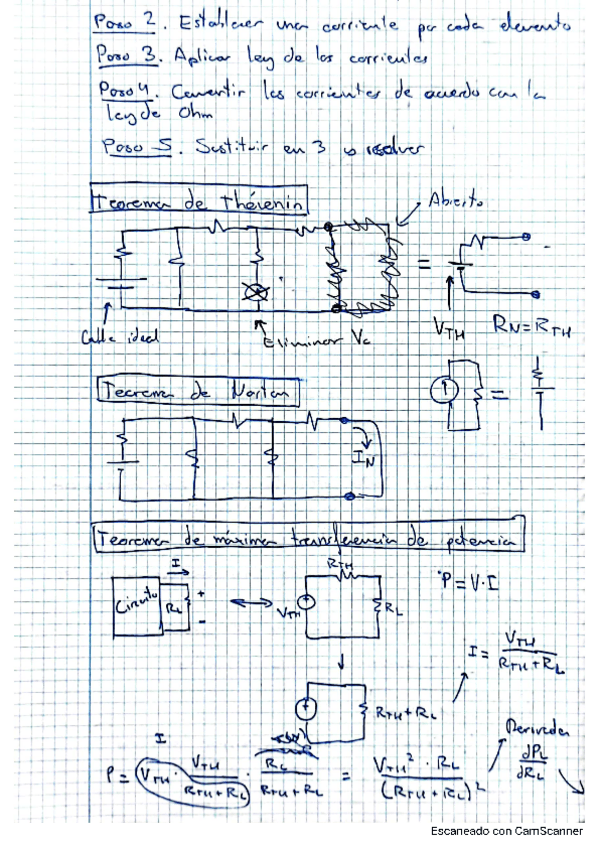 Paso 2. Establecer una corriente por cada elemento
Paso 3. Aplicar ley de las corrientes
Paso 4. Convertir las corrientes de acuerdo con la
ley de Ohm
Paso 5. Sustituir en 3 y resolver
Teorema de Thévenin
Abierto
=
Cable ideal
Eliminar Vc
V_TH
R_N = R_TH
Teorema de Norton
=
I_N
Teorema de máxima transferencia de potencia
Circuito
I
R_L
+
-
V_TH
R_TH
R_L
P = V·I
I = V_TH / (R_TH + R_L)
R_TH + R_L
Derivada
dP_L / dR_L
I
P = V_TH · V_TH / (R_TH + R_L) · R_L / (R_TH + R_L) = V_TH² · R_L / (R_TH + R_L)²
Escaneado con CamScanner